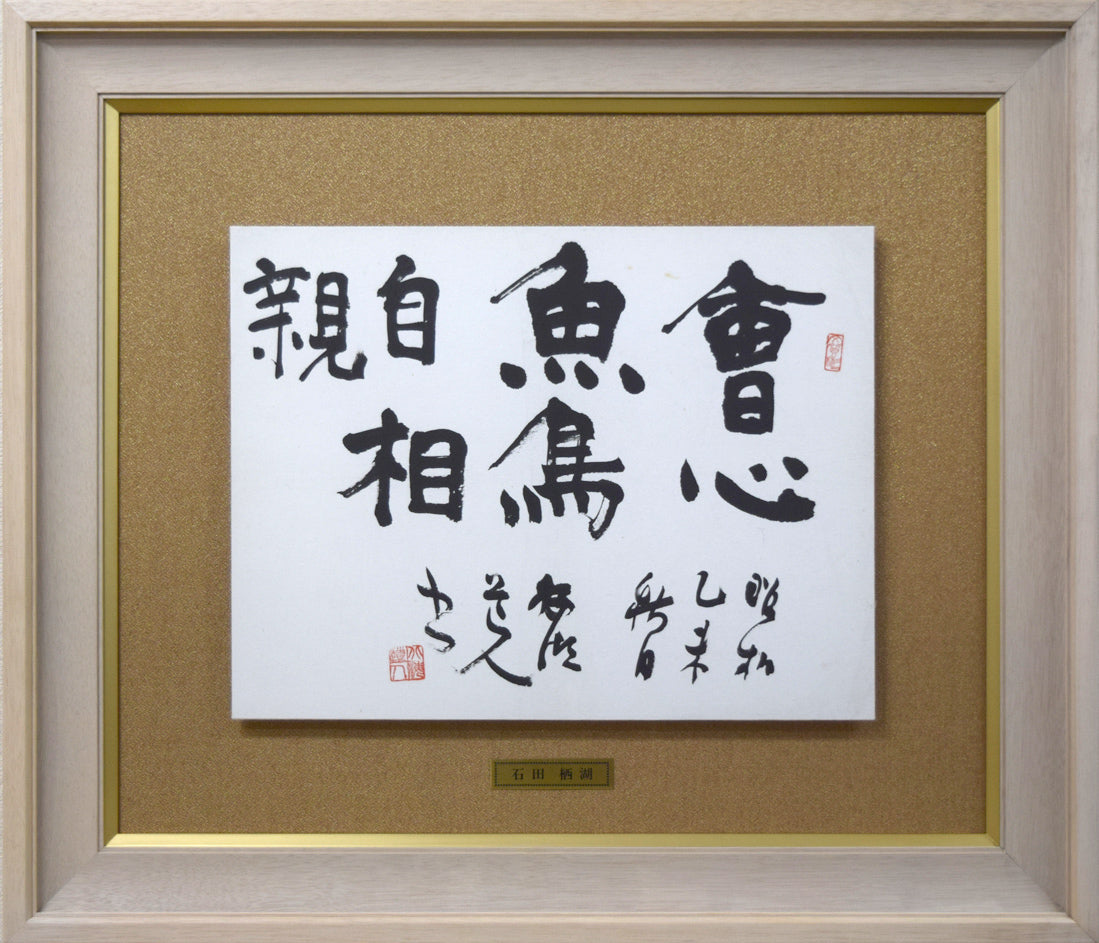 會心
魚鳥
自相
親
昭和
乙未
日
栖湖
道人
書
石田 栖湖